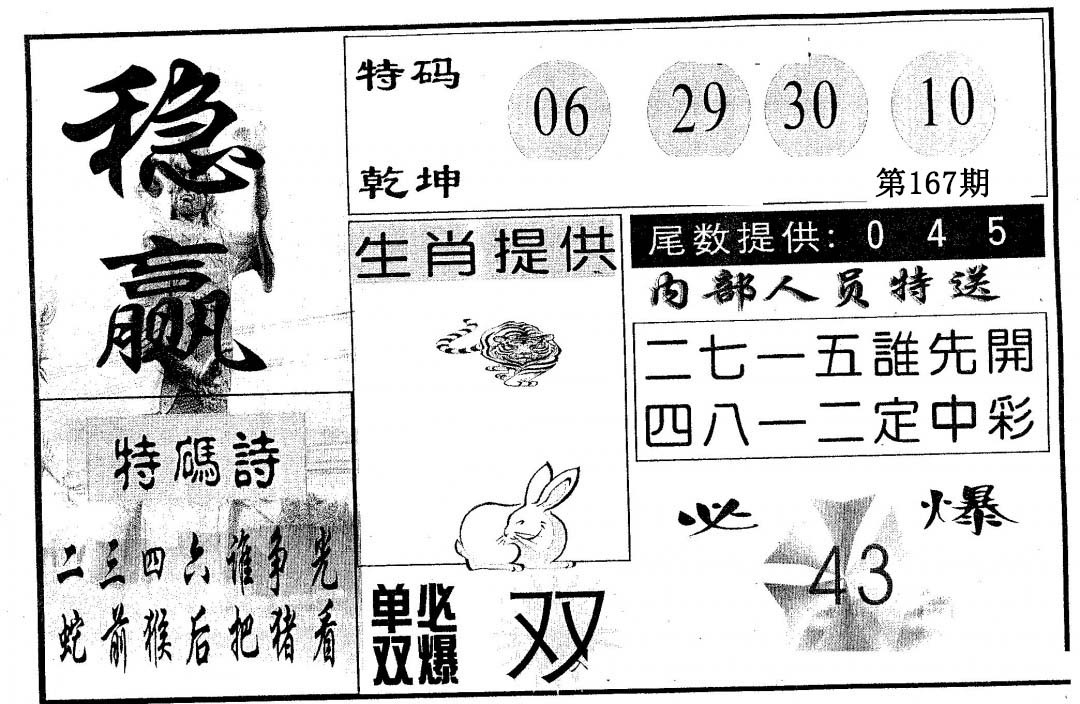 稳
赢
特码
乾坤
06 29 30 10
第167期
生肖提供
尾数提供: 0 4 5
内部人员特送
二七一五誰先開
四八一二定中彩
特碼詩
二三四六谁争光
蛇前猴后把猪看
必爆
43
单双
必爆
双